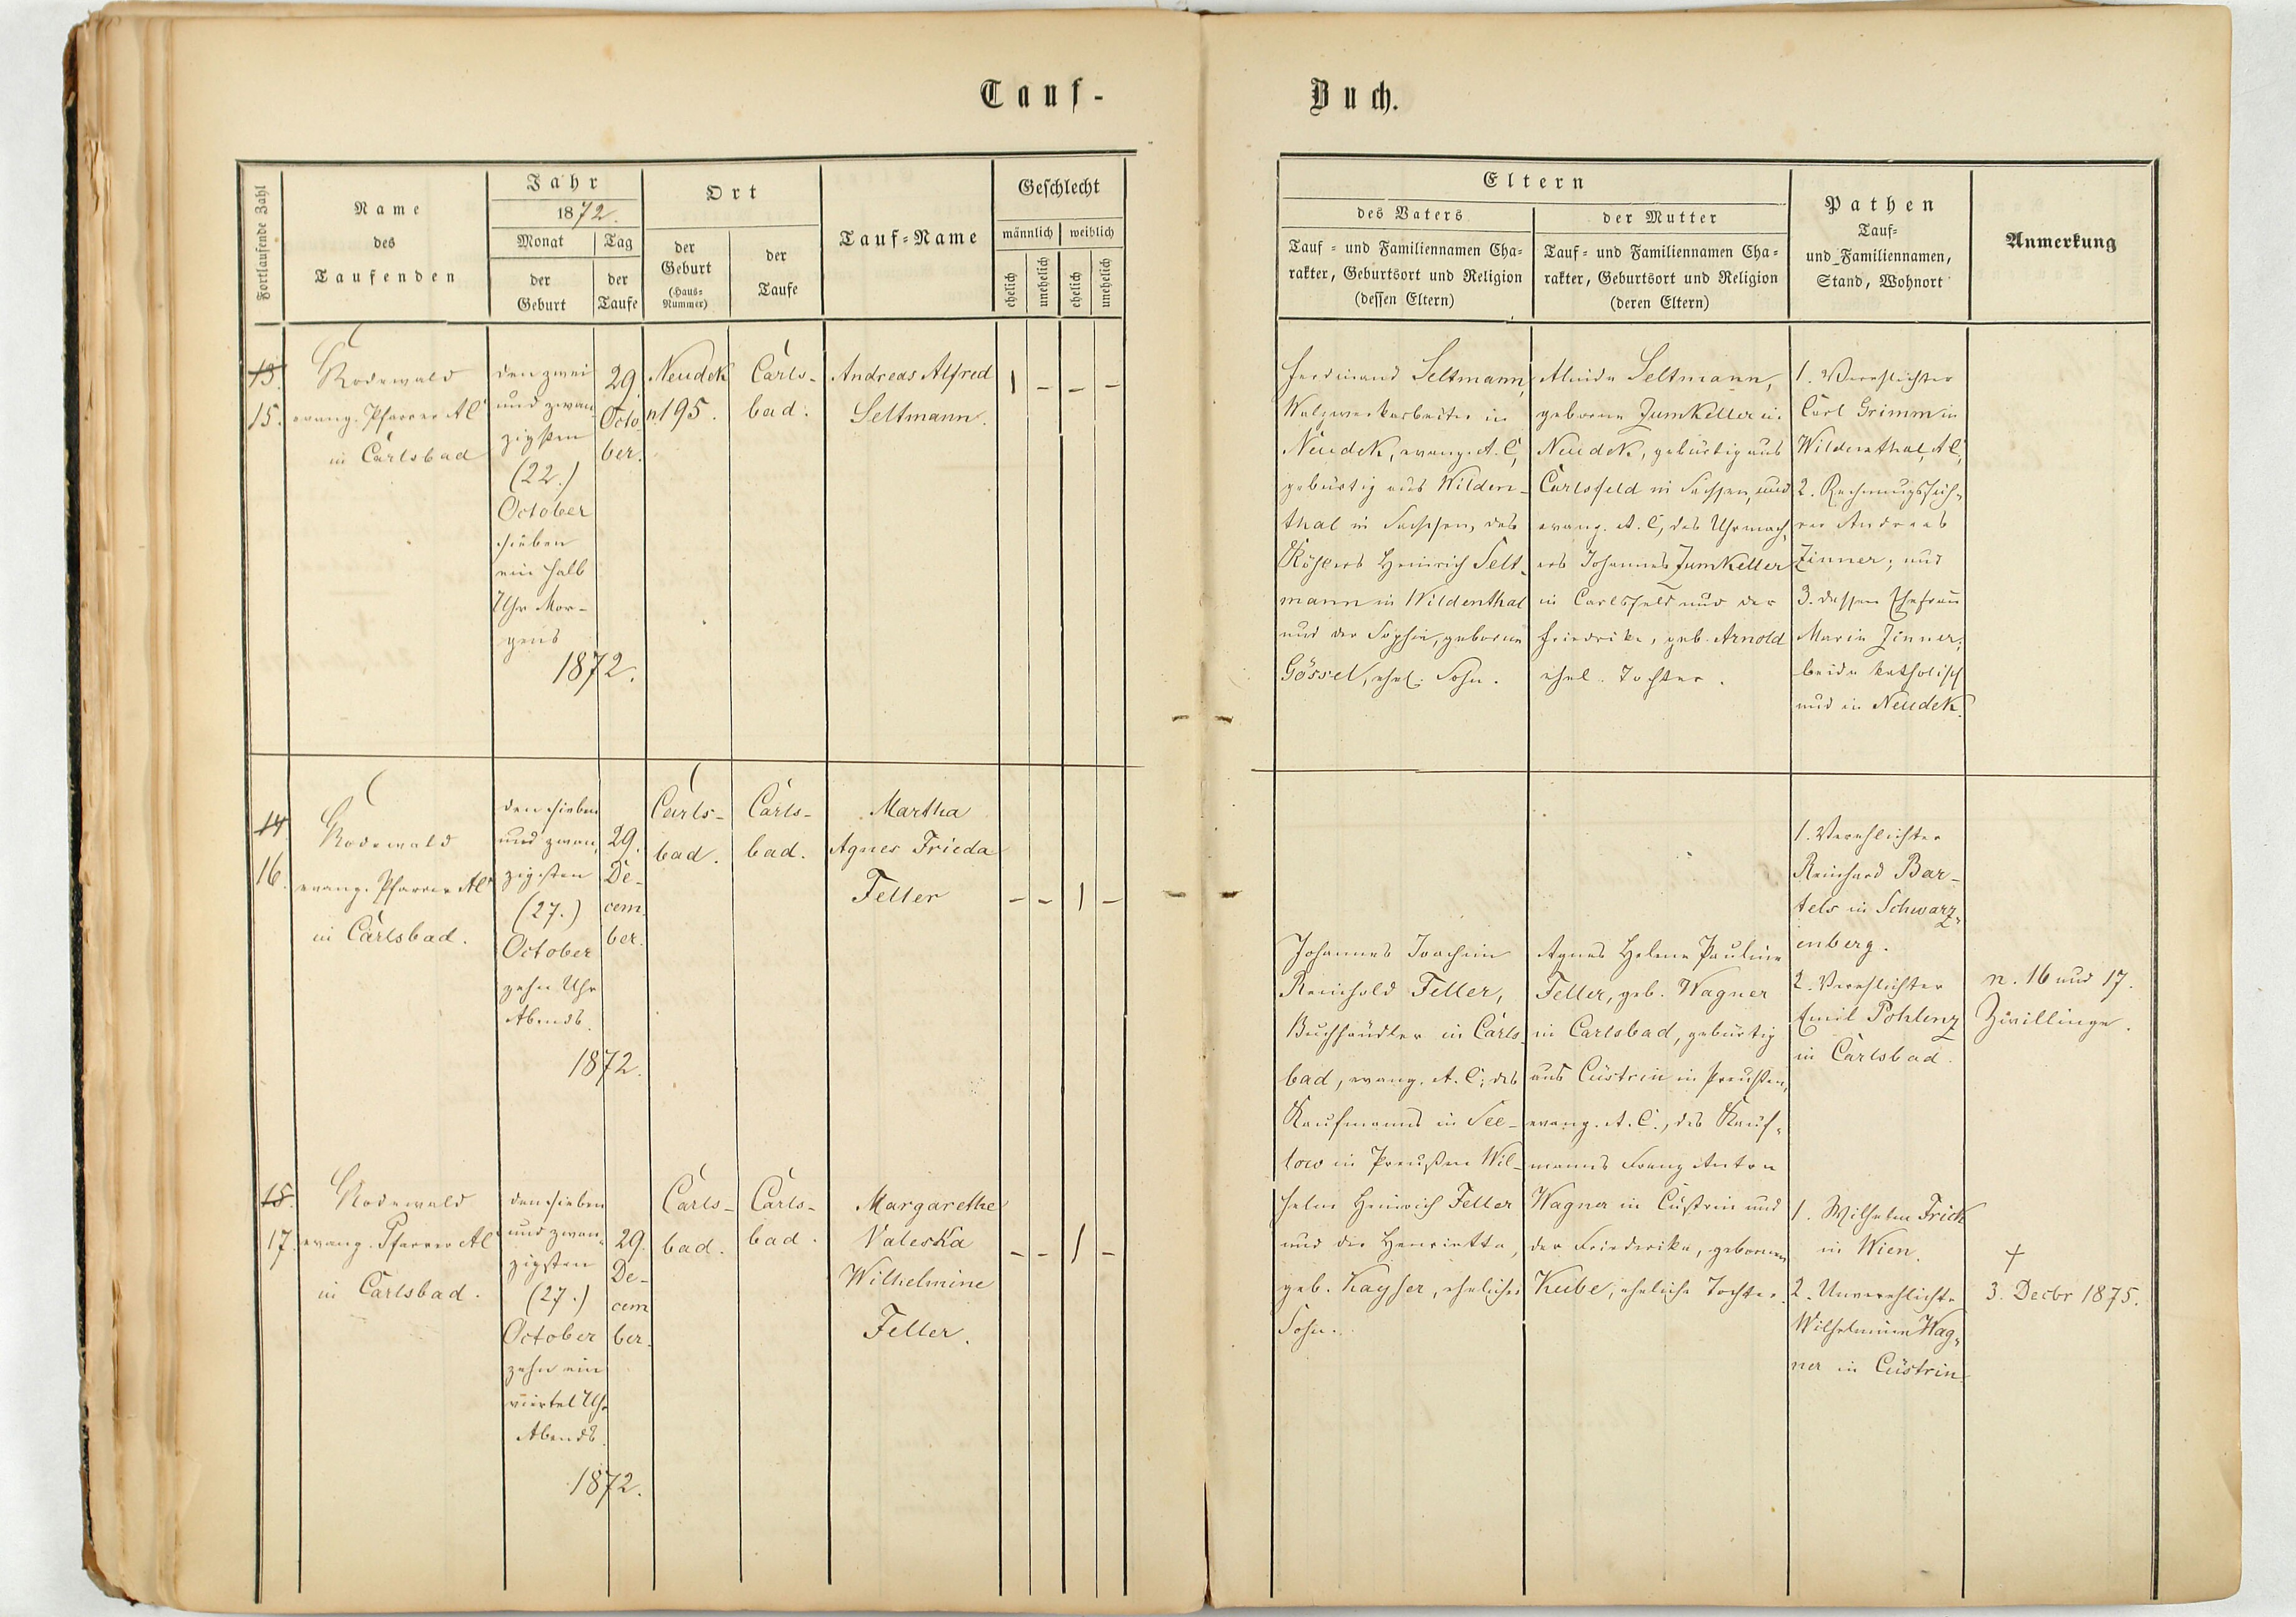 Tauf-
Buch.
Fortlaufende Zahl
Name
des
Taufenden
Jahr
1872.
Monat
Tag
der
Geburt
der
Taufe
Ort
der
Geburt
(Haus-
Nummer)
der
Taufe
Tauf-Name
Geschlecht
männlich
weiblich
ehelich
unehelich
ehelich
unehelich
Eltern
des Vaters
Tauf- und Familiennamen Cha-
rakter, Geburtsort und Religion
(dessen Eltern)
der Mutter
Tauf- und Familiennamen Cha-
rakter, Geburtsort und Religion
(deren Eltern)
Pathen
Tauf-
und Familiennamen,
Stand, Wohnort
Anmerkung
13.
15.
Rodewald
evang. Pfarrer AC
in Carlsbad
den zwei
und zwan
zigsten
(22.)
October
sieben
ein halb
Uhr Mor-
gens
1872.
29.
Octo
ber.
Neudek
n. 195.
Carls-
bad.
Andreas Alfred
Seltmann.
1 - - -
Ferdinand Seltmann,
Walzwerkarbeiter in
Neudek, evang. A. C,
gebürtig aus Wilden-
thal in Sachsen, des
Köhlers Heinrich Selt-
mann in Wildenthal
und der Sophie, geborne
Gössel, ehel. Sohn.
Seltmann,
geborne Zumkeller in
Neudek, gebürtig aus
Carlsfeld in Sachsen, und
evang. A. C, des Uhrmach
ers Johannes Zumkeller
in Carlsfeld und der
Friedrike, geb. Arnold
ehel. Tochter.
1. Verehlichter
Carl Grimm in
Wildenthal, AC,
2. Rechnungsfüh-
rer Andreas
Zinner, und
3. dessen Ehefrau
Marie Zinner,
beide katholisch
und in Neudek.
14
16.
Rodewald
evang. Pfarrer AC
in Carlsbad.
den sieben
und zwan
zigsten
(27.)
October
zehn Uhr
Abends.
1872.
29.
De-
cem
ber.
Carls-
bad.
Carls-
bad.
Martha
Agnes Frieda
Feller
- - 1 -
Johannes Joachim
Reinhold Feller,
Buchhändler in Carls-
bad, evang. A. C; des
Kaufmanns in See-
low in Preußen Wil-
helm Heinrich Feller
und der Henriette,
geb. Kayser, ehelicher
Sohn.
Agnes Helene Pauline
Feller, geb. Wagner
in Carlsbad, gebürtig
aus Cüstrin in Preußen,
evang. A. C., des Kauf-
manns Franz Anton
Wagner in Cüstrin und
der Friederike, gebornen
Kube, eheliche Tochter.
1. Verehlichter
Reinhard Bar-
tels in Schwarz-
enberg.
2. Verehlichter
Emil Pohlenz
in Carlsbad.
n. 16 und 17.
Zwillinge.
15.
17.
Rodewald
evang. Pfarrer AC
in Carlsbad.
den sieben
und zwan-
zigsten
(27.)
October
zehn ein
viertel Uhr
Abends.
1872.
29.
De-
cem
ber.
Carls-
bad.
Carls-
bad.
Margarethe
Valeska
Wilhelmine
Feller.
- - 1 -
1. Wilhelm Frick
in Wien.
2. Unverehlichte
Wilhelmine Wag-
ner in Cüstrin
†
3. Decbr 1875.